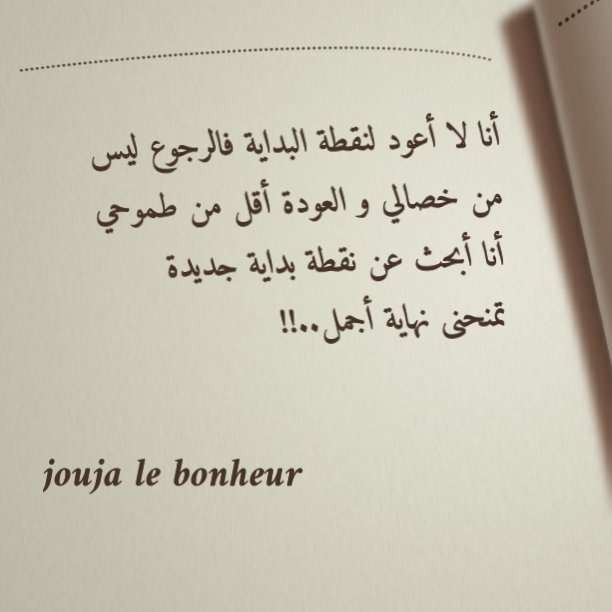 أنا لا أعود لنقطة البداية فالرجوع ليس
من خصالي و العودة أقل من طموحي
أنا أبحث عن نقطة بداية جديدة
تمنحنى نهاية أجمل..!!
jouja le bonheur